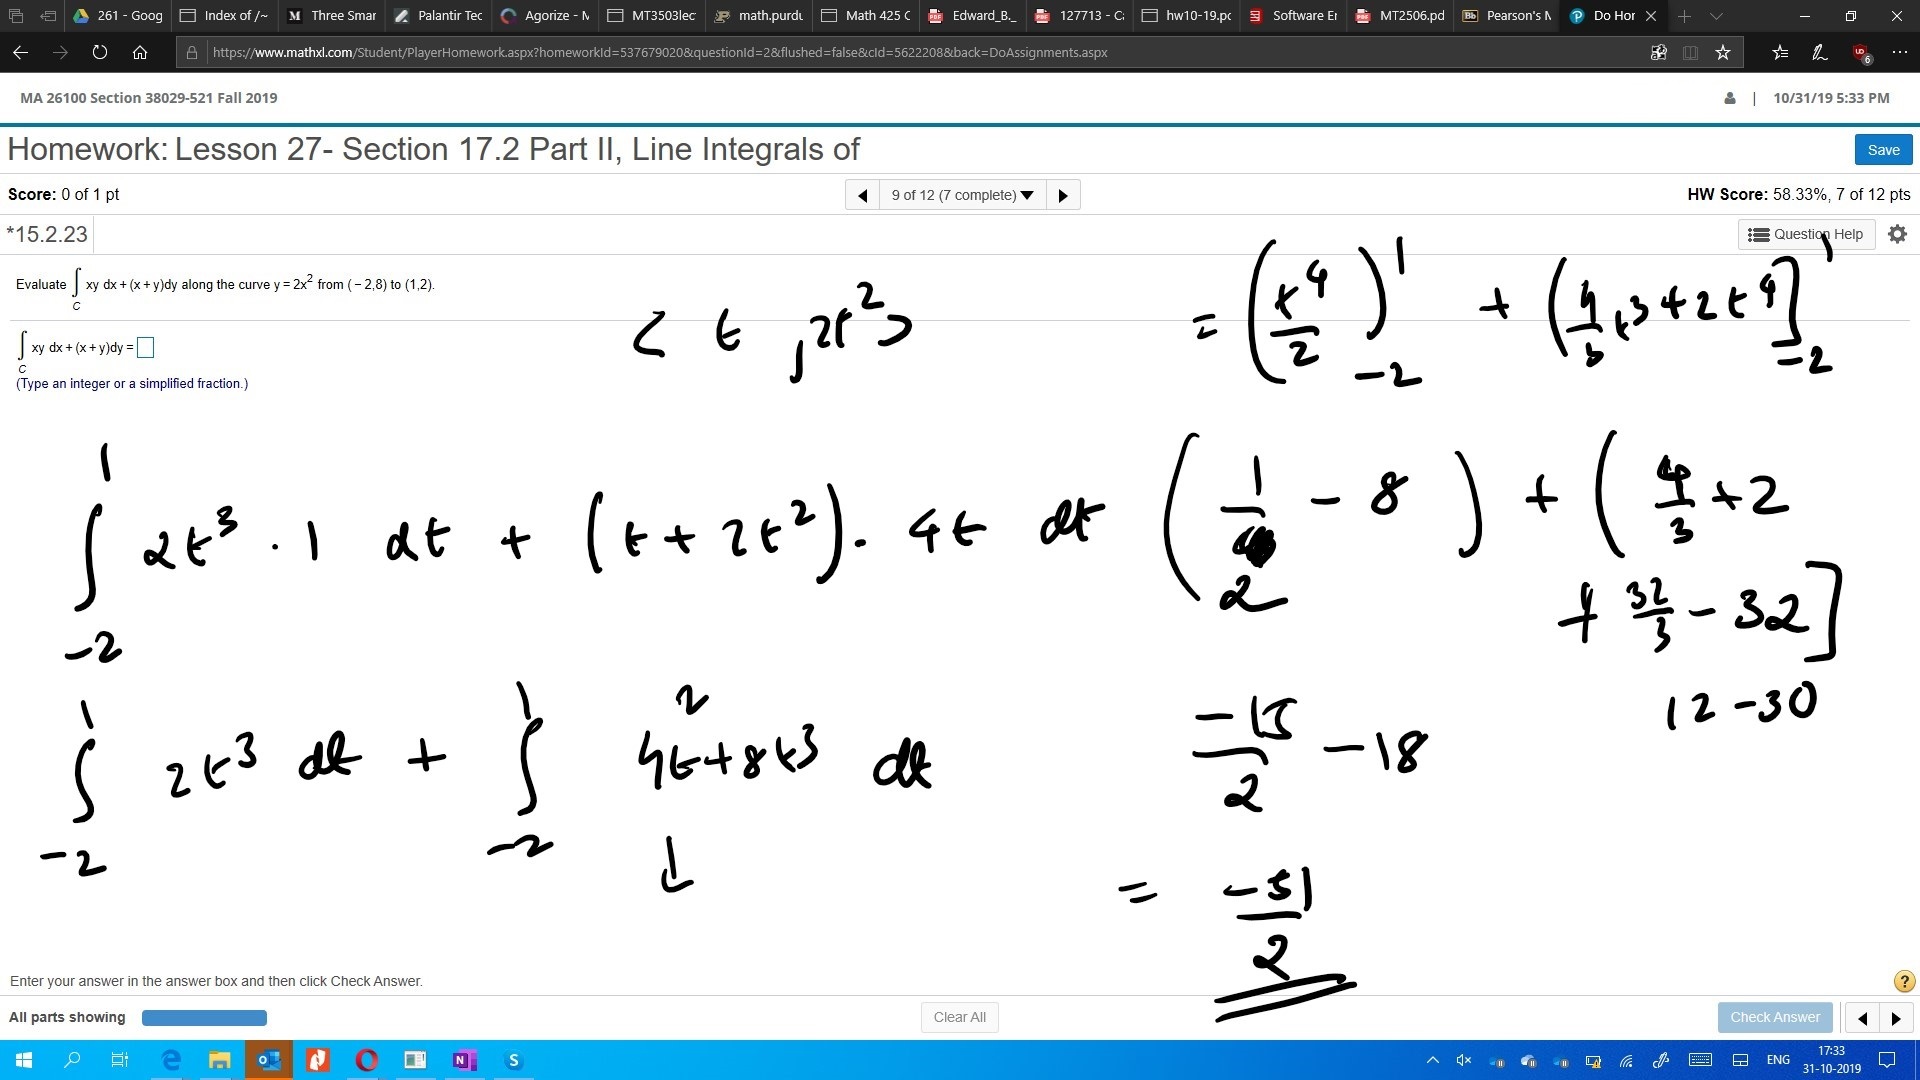 261 - Goog
Index of /~
Three Smar
Palantir Tec
Agorize - M
MT3503lec
math.purdu
Math 425 C
Edward_B._
127713 - Ca
hw10-19.pc
Software Er
MT2506.pd
Pearson's M
Do Hor
https://www.mathxl.com/Student/PlayerHomework.aspx?homeworkId=537679020&questionId=2&flushed=false&cId=5622208&back=DoAssignments.aspx
6
MA 26100 Section 38029-521 Fall 2019
| 10/31/19 5:33 PM
Homework: Lesson 27- Section 17.2 Part II, Line Integrals of
Save
Score: 0 of 1 pt
9 of 12 (7 complete)
HW Score: 58.33%, 7 of 12 pts
*15.2.23
Question Help
Evaluate ∫C xy dx + (x + y)dy along the curve y = 2x² from ( − 2,8) to (1,2).
∫C xy dx + (x + y)dy =
(Type an integer or a simplified fraction.)
< t , 2t² >
= (t⁴/2)¹₋₂ + (4/3 t³ + 2t⁴]¹₋₂
∫₋₂¹ 2t³ · 1 dt + (t + 2t²) · 4t dt
(1/2 − 8) + (4/3 + 2
+ 32/3 − 32]
12 − 30
∫₋₂¹ 2t³ dt + ∫₋₂¹ 4t² + 8t³ dt
↓
−15/2 − 18
= −51/2
Enter your answer in the answer box and then click Check Answer.
?
All parts showing
Clear All
Check Answer
ENG
17:33
31-10-2019